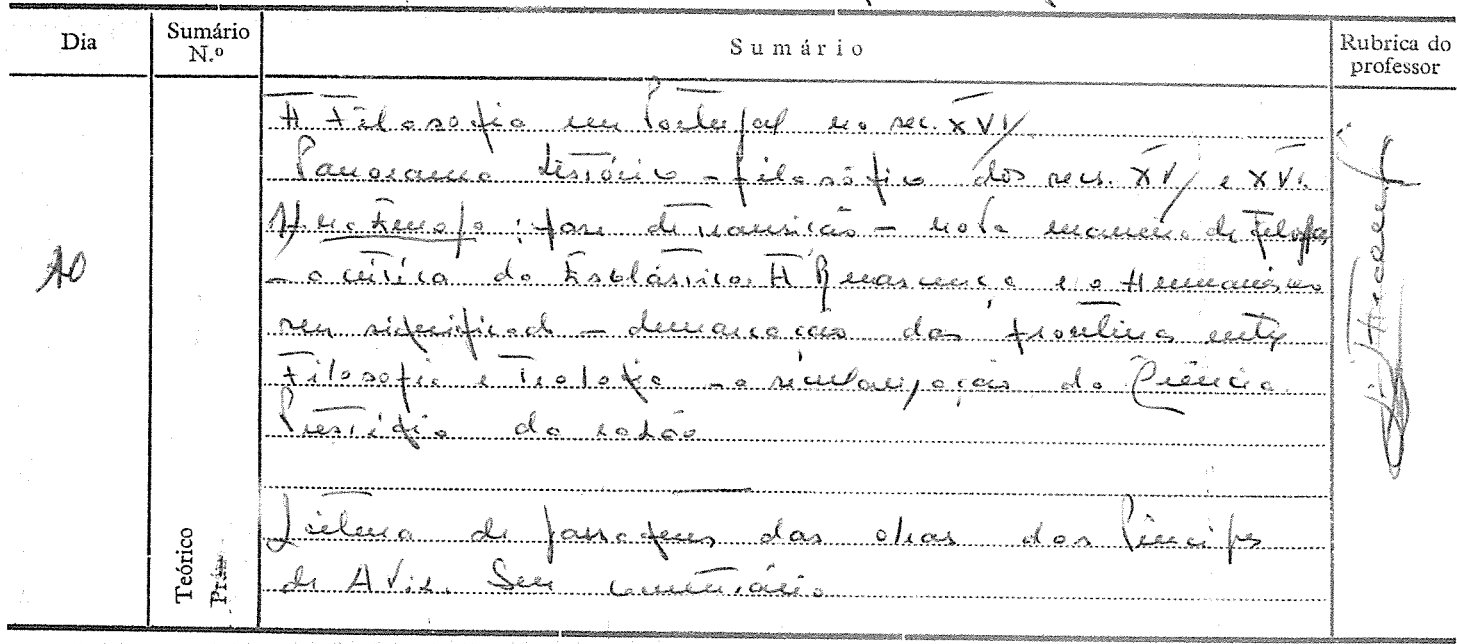 Dia
Sumário N.º
Sumário
Rubrica do professor
10
A Filosofia em Portugal no séc. XVI
Panorama histórico-filosófico dos secs. XV e XVI.
fase de transição - nova maneira de filosofar
- a crítica da Escolástica. A Renascença e o Humanismo
seu significado - demarcação das fronteiras entre
Filosofia e Teologia - a secularização da Ciência.
Prestígio da razão
Leitura de passagens das obras dos Príncipes
de Avis. Seu comentário
Teórico
Prát